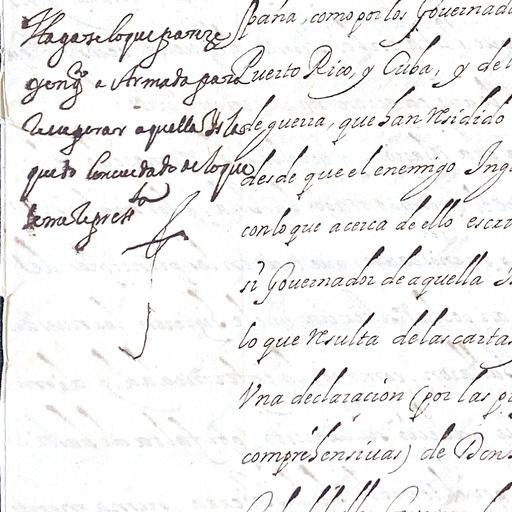 Hagase lo que pareze
y en qto a Armada para
recuperar aquella Isla
quedo con cuidado de lo que
se me representa
spaña, como por los Governad
Puerto Rico, y Cuba, y del
de guerra, que han residido
desde que el enemigo Ing
con lo que acerca de ello escri
Governador de aquella
lo que resulta de las cartas
Vna declaracion (por las
comprehensiuas) de Don